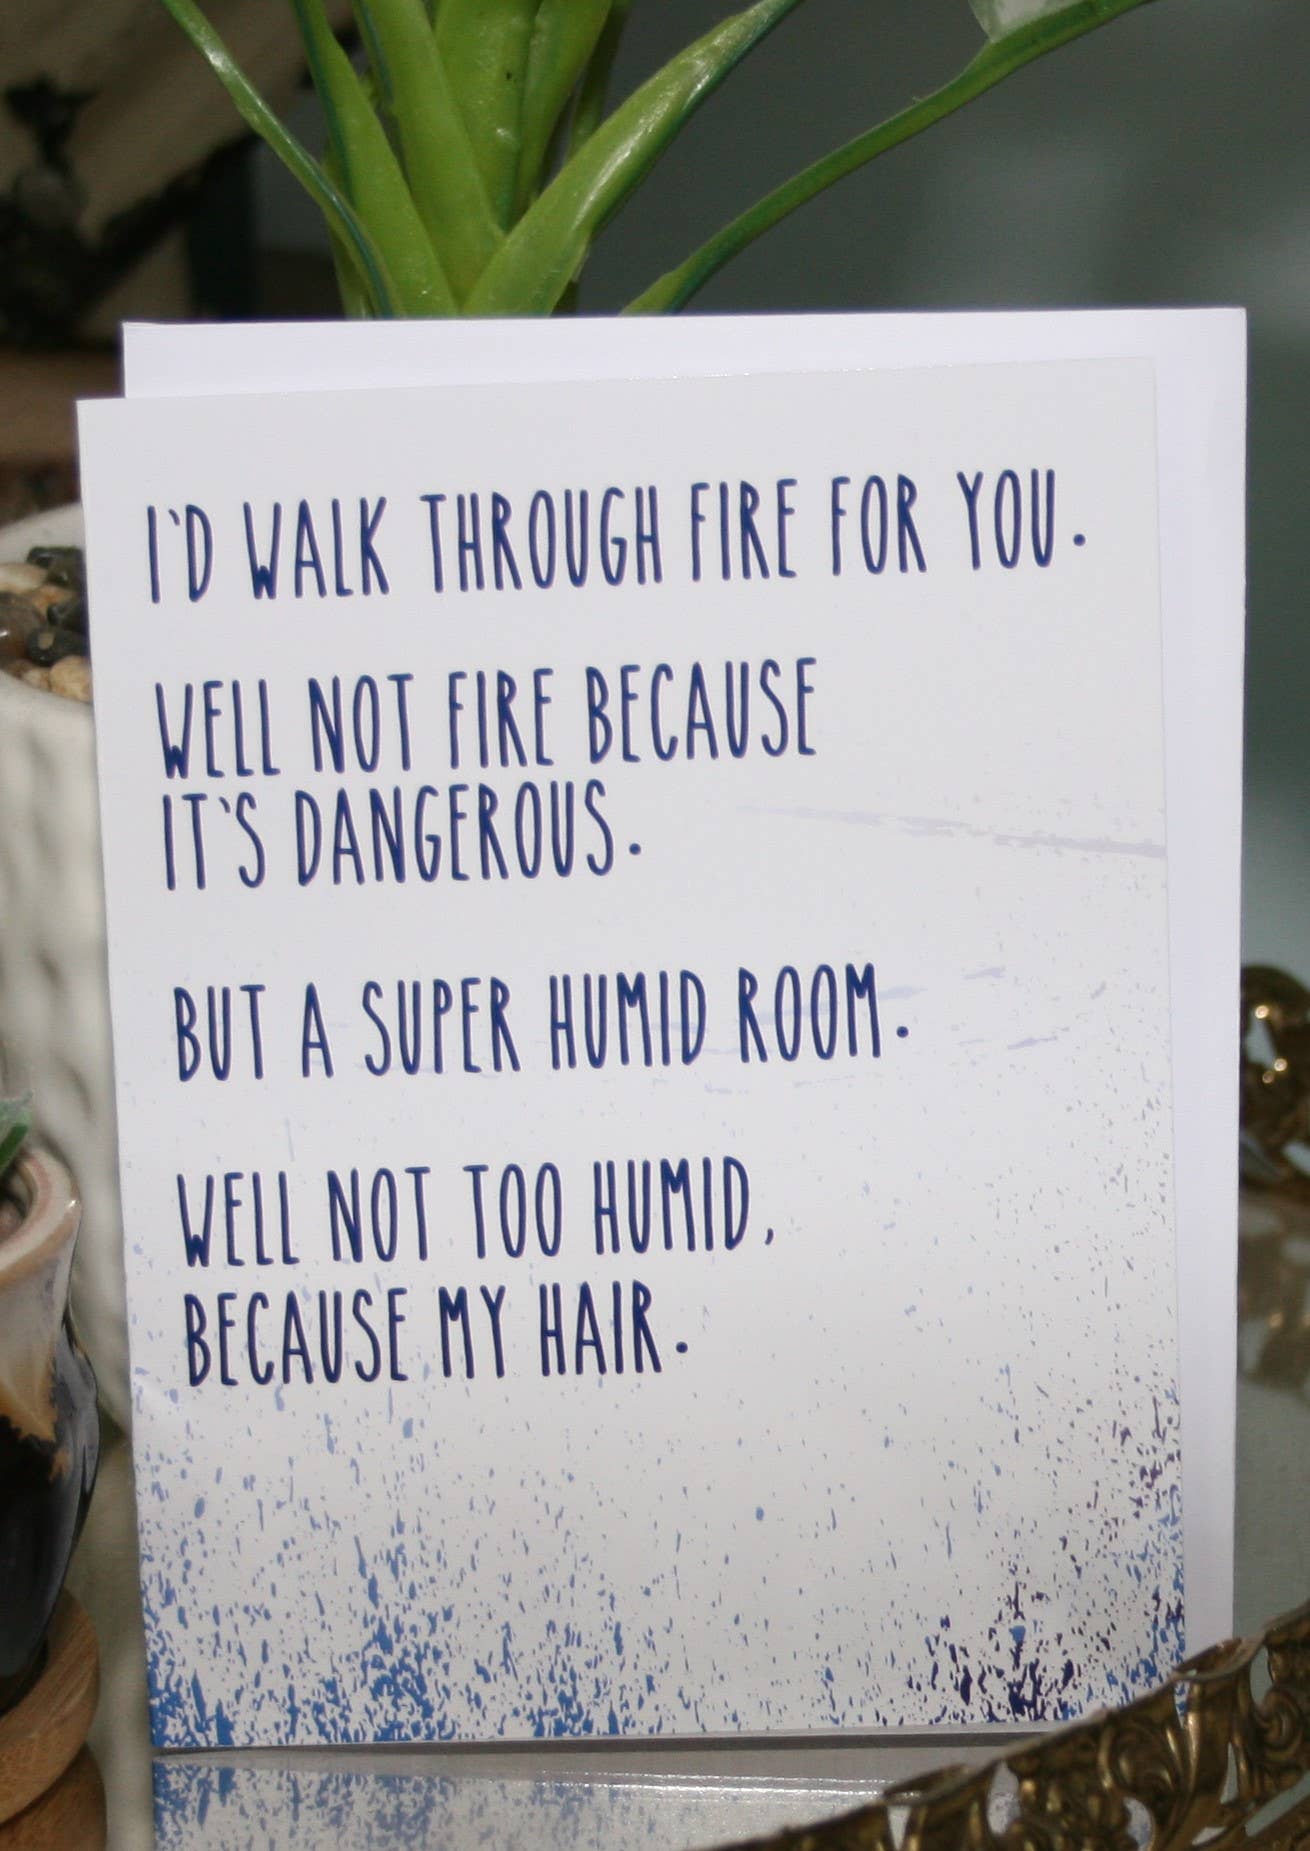 I'D WALK THROUGH FIRE FOR YOU.
WELL NOT FIRE BECAUSE
IT'S DANGEROUS.
BUT A SUPER HUMID ROOM.
WELL NOT TOO HUMID,
BECAUSE MY HAIR.